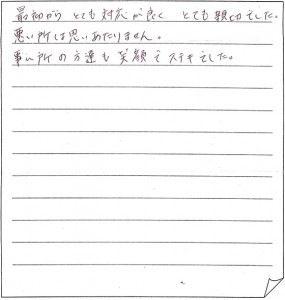 最初から とても対応が良く とても親切でした。
悪い所は思いあたりません。
事ム所の方達も笑顔でステキでした。